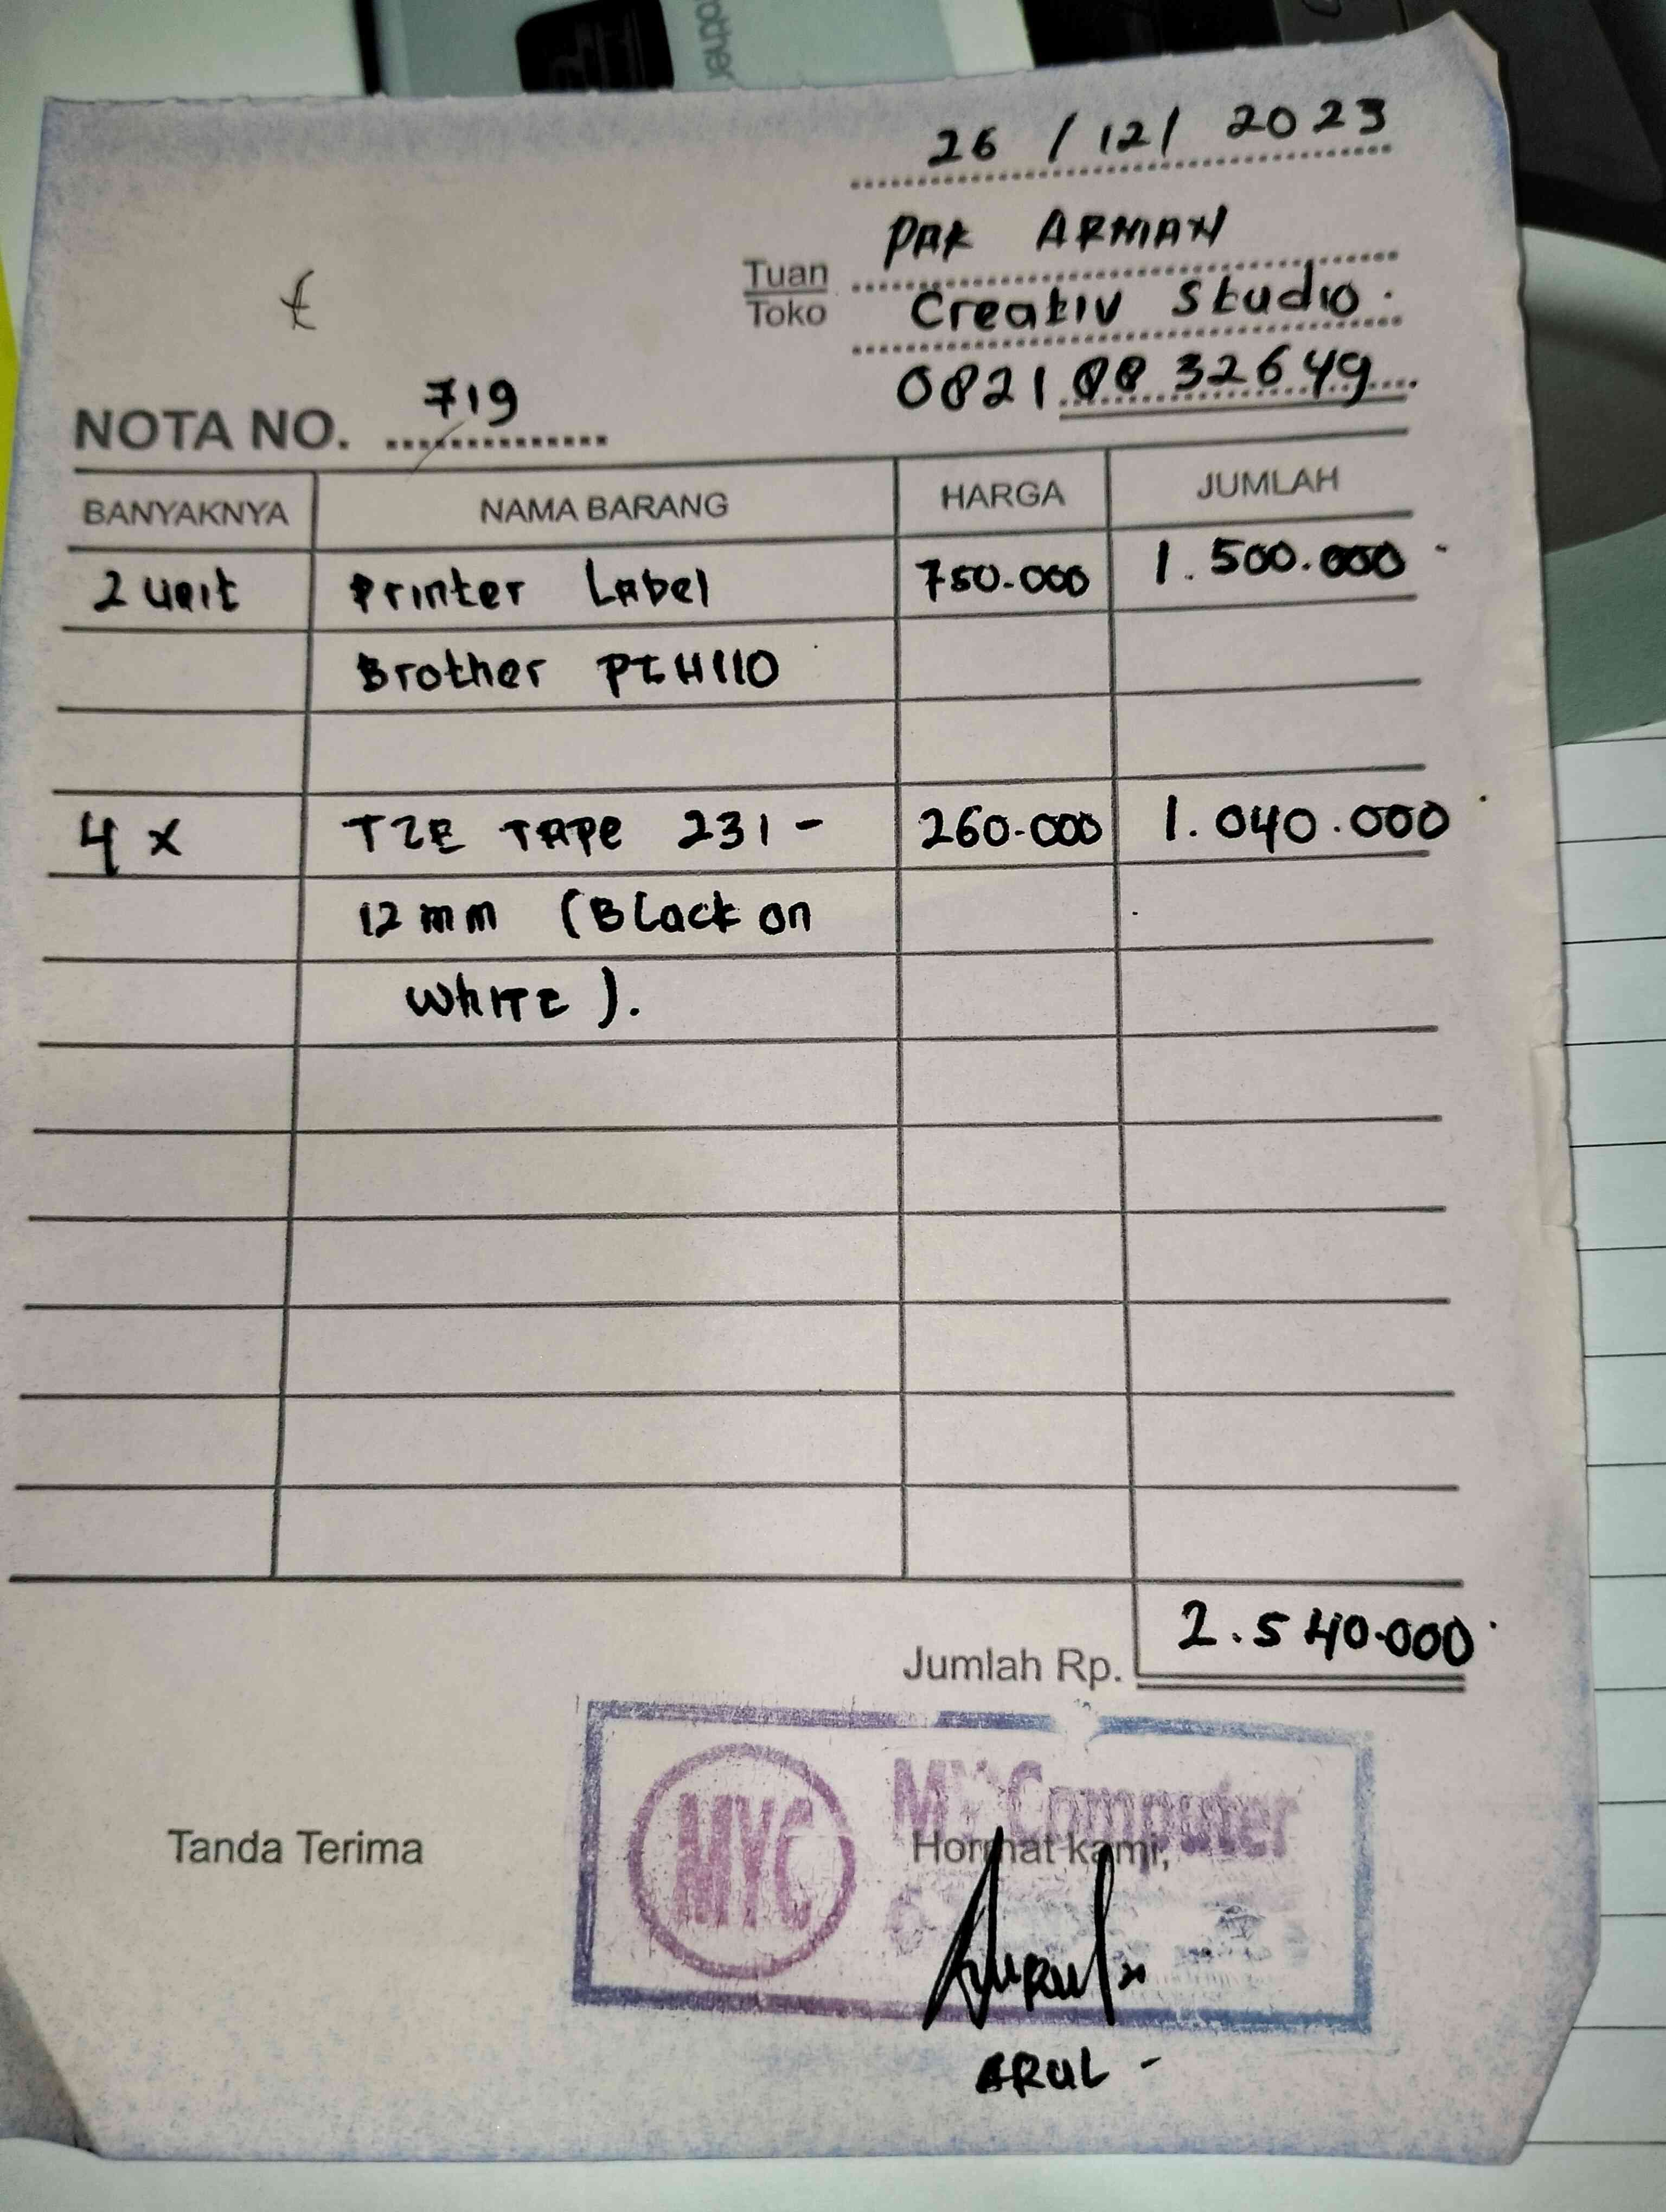 brother
26 / 12 / 2023
PAK ARMAN
Tuan
Toko
Creativ Studio.
0821 88 32649
NOTA NO. 719
BANYAKNYA NAMA BARANG HARGA JUMLAH
2 unit Printer Label 750.000 1.500.000
Brother PTH110
4 x TZE TAPE 231 - 260.000 1.040.000
12 mm (Black on
WHITE).
Jumlah Rp. 2.540.000
MYC MY Computer
Tanda Terima Hormat kami,
ARUL -